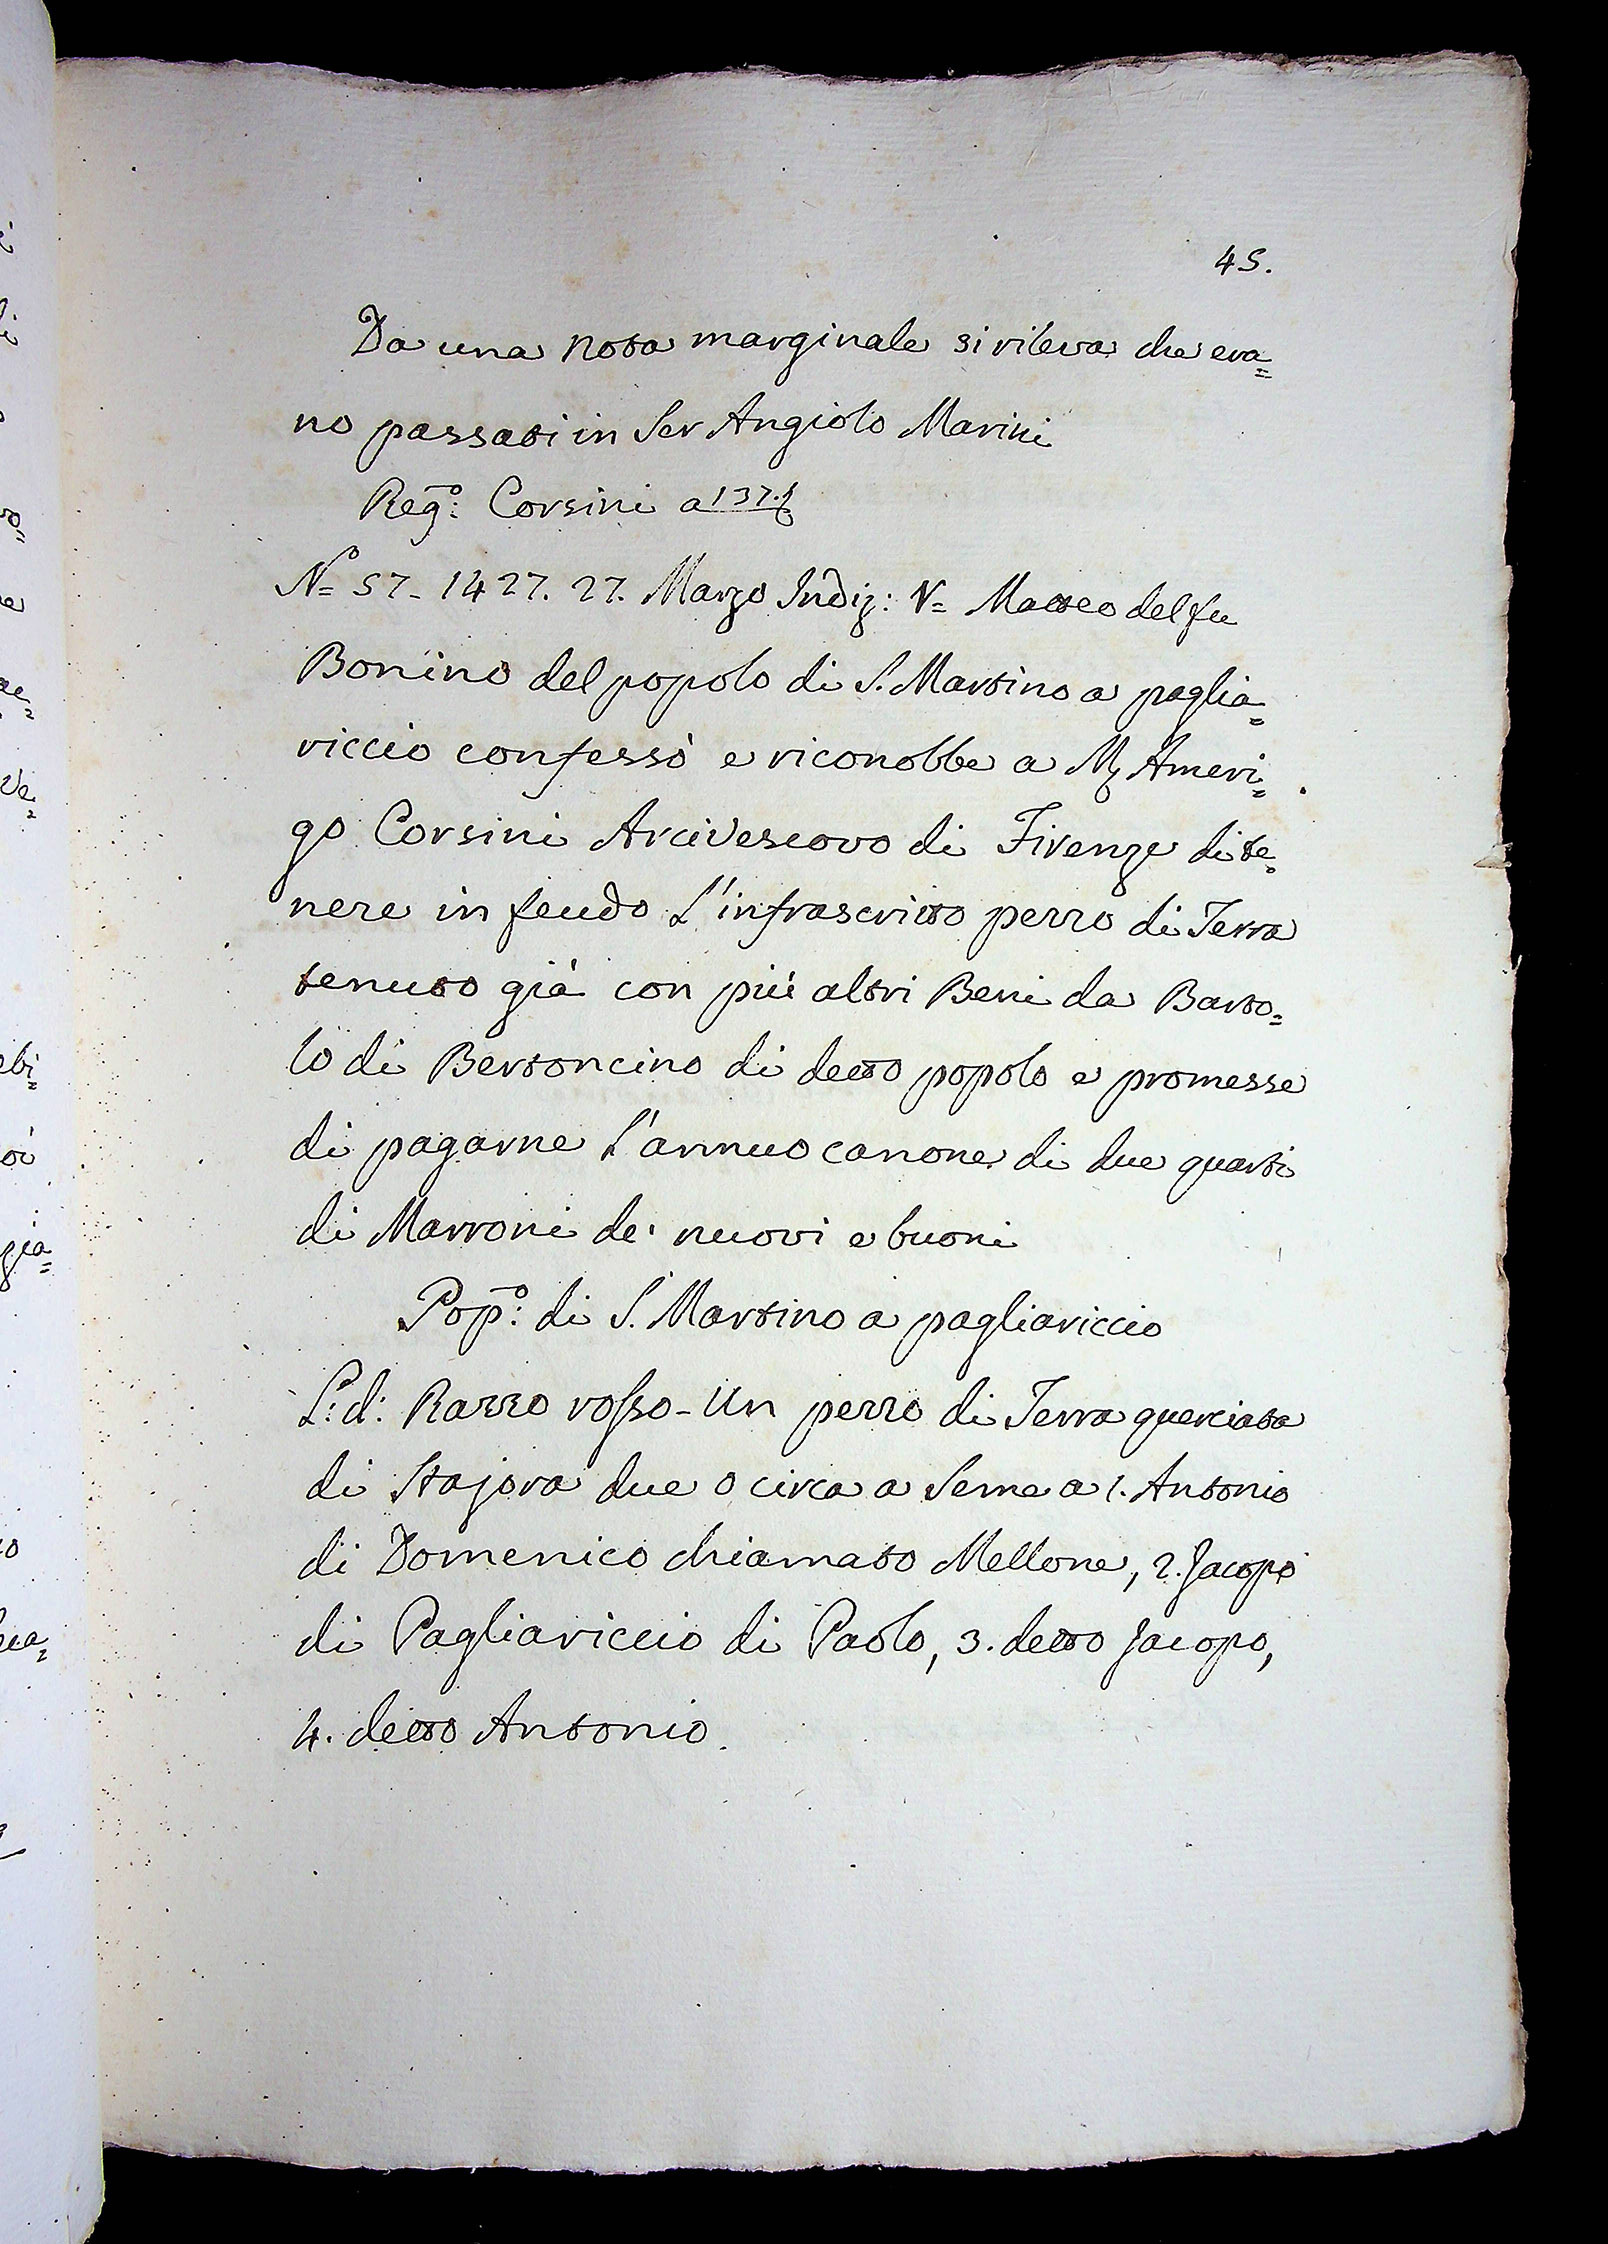 45.
Da una nota marginale si rileva che era=
no passati in Ser Angiolo Marini
Reg.º: Corsini a 137.
Nº= 57- 1427. 27. Marzo Indiz: V= Matteo del fu
Bonino del popolo di S. Martino a paglia=
riccio confessò e riconobbe a M. Ameri=
go Corsini Arcivescovo di Firenze di te=
nere in feudo l'infrascritto pezzo di Terra
tenuto già con più altri Beni da Barto=
lo di Bertoncino di detto popolo e promesse
di pagarne l'annuo canone di due quarti
di Marroni de' nuovi e buoni
Pop.º: di S. Martino a pagliariccio
L: d: Razzo rosso- Un pezzo di Terra querciata
di Stajora due o circa a Seme a 1. Antonio
di Domenico chiamato Mellone, 2. Jacopo
di Pagliariccio di Paolo, 3. detto Jacopo,
4. detto Antonio.